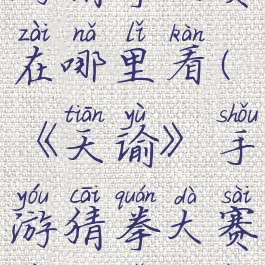 zài nǎ lǐ kàn
在哪里看(
tiān yù shǒu
《天谕》手
yóu cāi quán dà sài
游猜拳大赛